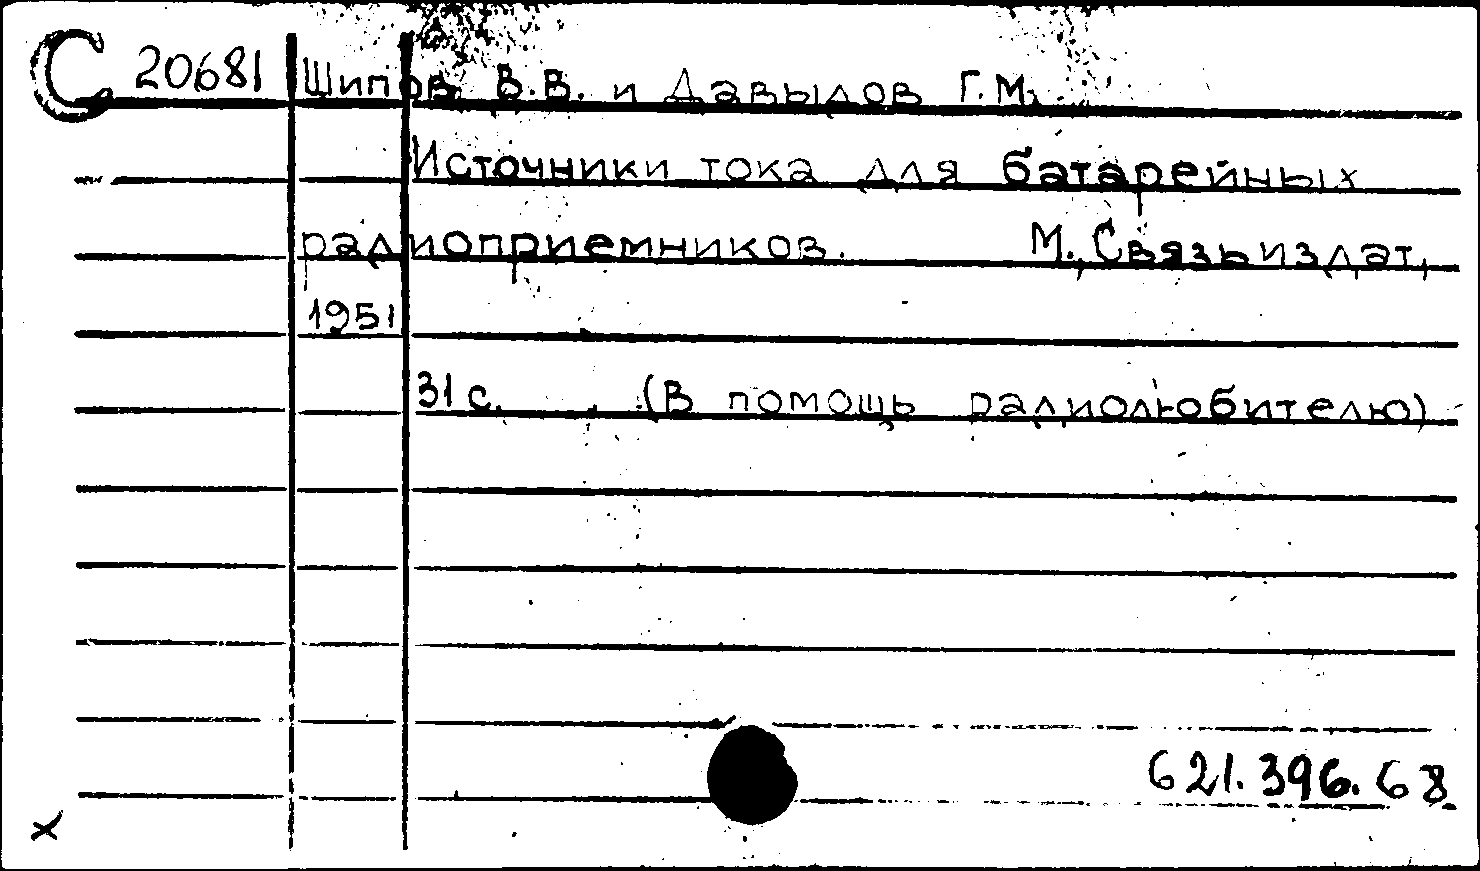 С 20681 Шипов В.В. и Давыдов Г.М.
Источники тока для батарейных
радиоприемников. М., Связьиздат,
1951
31 с. (В помощь радиолюбителю)
621.396.68
x